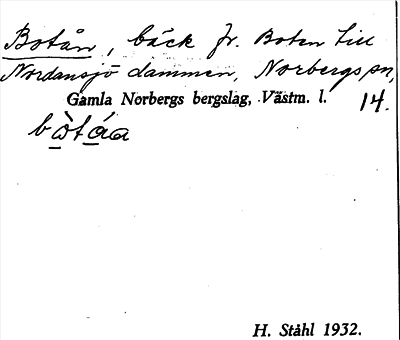 Botån, bäck fr. Boten till
Nordansjö dammen, Norbergs sn,
Gamla Norbergs bergslag, Västm. l. 14.
bòtáa
H. Ståhl 1932.